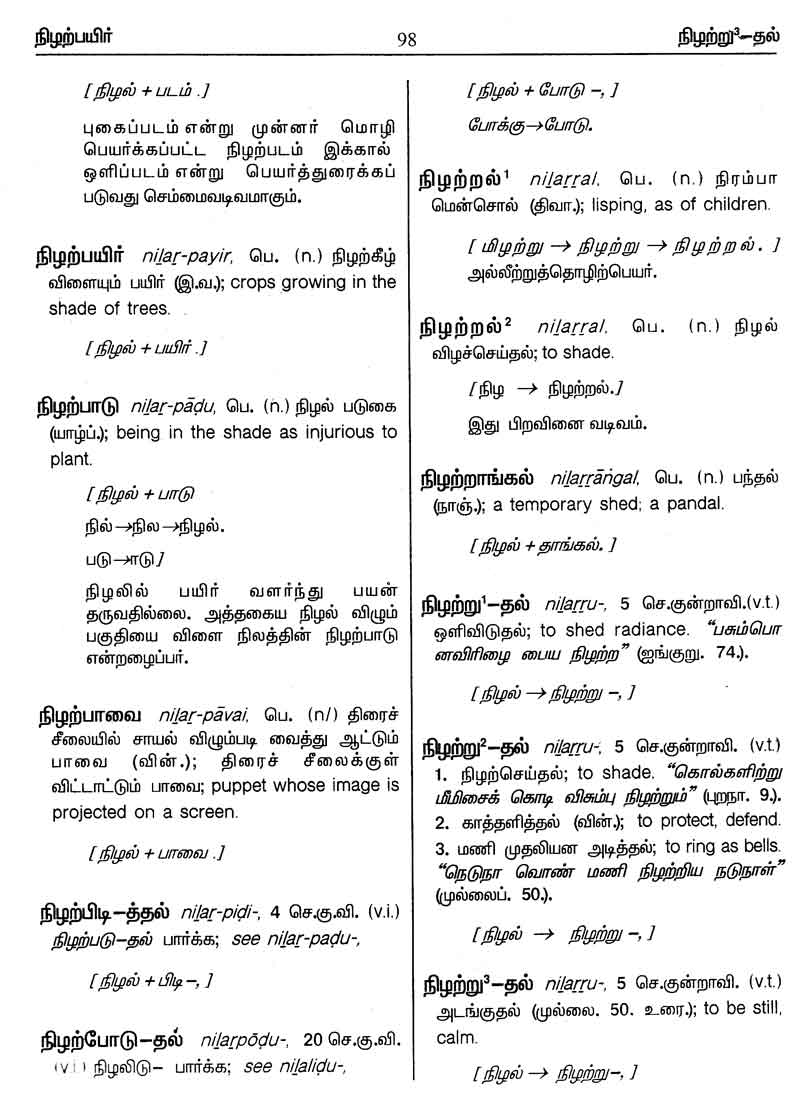 நிழற்பயிர்
98
நிழற்று³–தல்
[நிழல் + படம் .]
புகைப்படம் என்று முன்னர் மொழி
பெயர்க்கப்பட்ட நிழற்படம் இக்கால்
ஒளிப்படம் என்று பெயர்த்துரைக்கப்
படுவது செம்மைவடிவமாகும்.
நிழற்பயிர் niḻaṟ-payir, பெ. (n.) நிழற்கீழ்
விளையும் பயிர் (இ.வ.); crops growing in the
shade of trees.
[நிழல் + பயிர் .]
நிழற்பாடு niḻaṟ-pāḍu, பெ. (n.) நிழல் படுகை
(யாழ்ப்.); being in the shade as injurious to
plant.
[நிழல் + பாடு
நில்→நில→நிழல்.
படு→ாடு]
நிழலில் பயிர் வளர்ந்து பயன்
தருவதில்லை. அத்தகைய நிழல் விழும்
பகுதியை விளை நிலத்தின் நிழற்பாடு
என்றழைப்பர்.
நிழற்பாவை niḻaṟ-pāvai, பெ. (n/) திரைச்
சீலையில் சாயல் விழும்படி வைத்து ஆட்டும்
பாவை (வின்.); திரைச் சீலைக்குள்
விட்டாட்டும் பாவை; puppet whose image is
projected on a screen.
[நிழல் + பாவை .]
நிழற்பிடி–த்தல் niḻaṟ-piḍi-, 4 செ.கு.வி. (v.i.)
நிழற்படு–தல் பார்க்க; see niḻaṟ-paḍu-,
[நிழல் + பிடி –, ]
நிழற்போடு–தல் niḻaṟpōḍu-, 20 செ.கு.வி.
(v.i.) நிழலிடு– பார்க்க; see niḻaliḍu-,
[நிழல் + போடு –, ]
போக்கு→போடு.
நிழற்றல்¹ niḻaṟṟal, பெ. (n.) நிரம்பா
மென்சொல் (திவா.); lisping, as of children.
[மிழற்று → நிழற்று → நிழற்றல். ]
அல்லீற்றுத்தொழிற்பெயர்.
நிழற்றல்² niḻaṟṟal, பெ. (n.) நிழல்
விழச்செய்தல்; to shade.
[நிழ → நிழற்றல்.]
இது பிறவினை வடிவம்.
நிழற்றாங்கல் niḻaṟṟāṅgal, பெ. (n.) பந்தல்
(நாஞ்.); a temporary shed; a pandal.
[நிழல் + தாங்கல். ]
நிழற்று¹–தல் niḻaṟṟu-, 5 செ.குன்றாவி.(v.t.)
ஒளிவிடுதல்; to shed radiance. “பசும்பொ
னவிரிழை பைய நிழற்ற” (ஐங்குறு. 74.).
[நிழல் → நிழற்று –, ]
நிழற்று²–தல் niḻaṟṟu-, 5 செ.குன்றாவி. (v.t.)
1. நிழற்செய்தல்; to shade. “கொல்களிற்று
மீமிசைக் கொடி விசும்பு நிழற்றும்” (புறநா. 9.).
2. காத்தளித்தல் (வின்.); to protect, defend.
3. மணி முதலியன அடித்தல்; to ring as bells.
“நெடுநா வொண் மணி நிழற்றிய நடுநாள்”
(முல்லைப். 50.).
[நிழல் → நிழற்று –, ]
நிழற்று³–தல் niḻaṟṟu-, 5 செ.குன்றாவி. (v.t.)
அடங்குதல் (முல்லை. 50. உரை.); to be still,
calm.
[நிழல் → நிழற்று–, ]